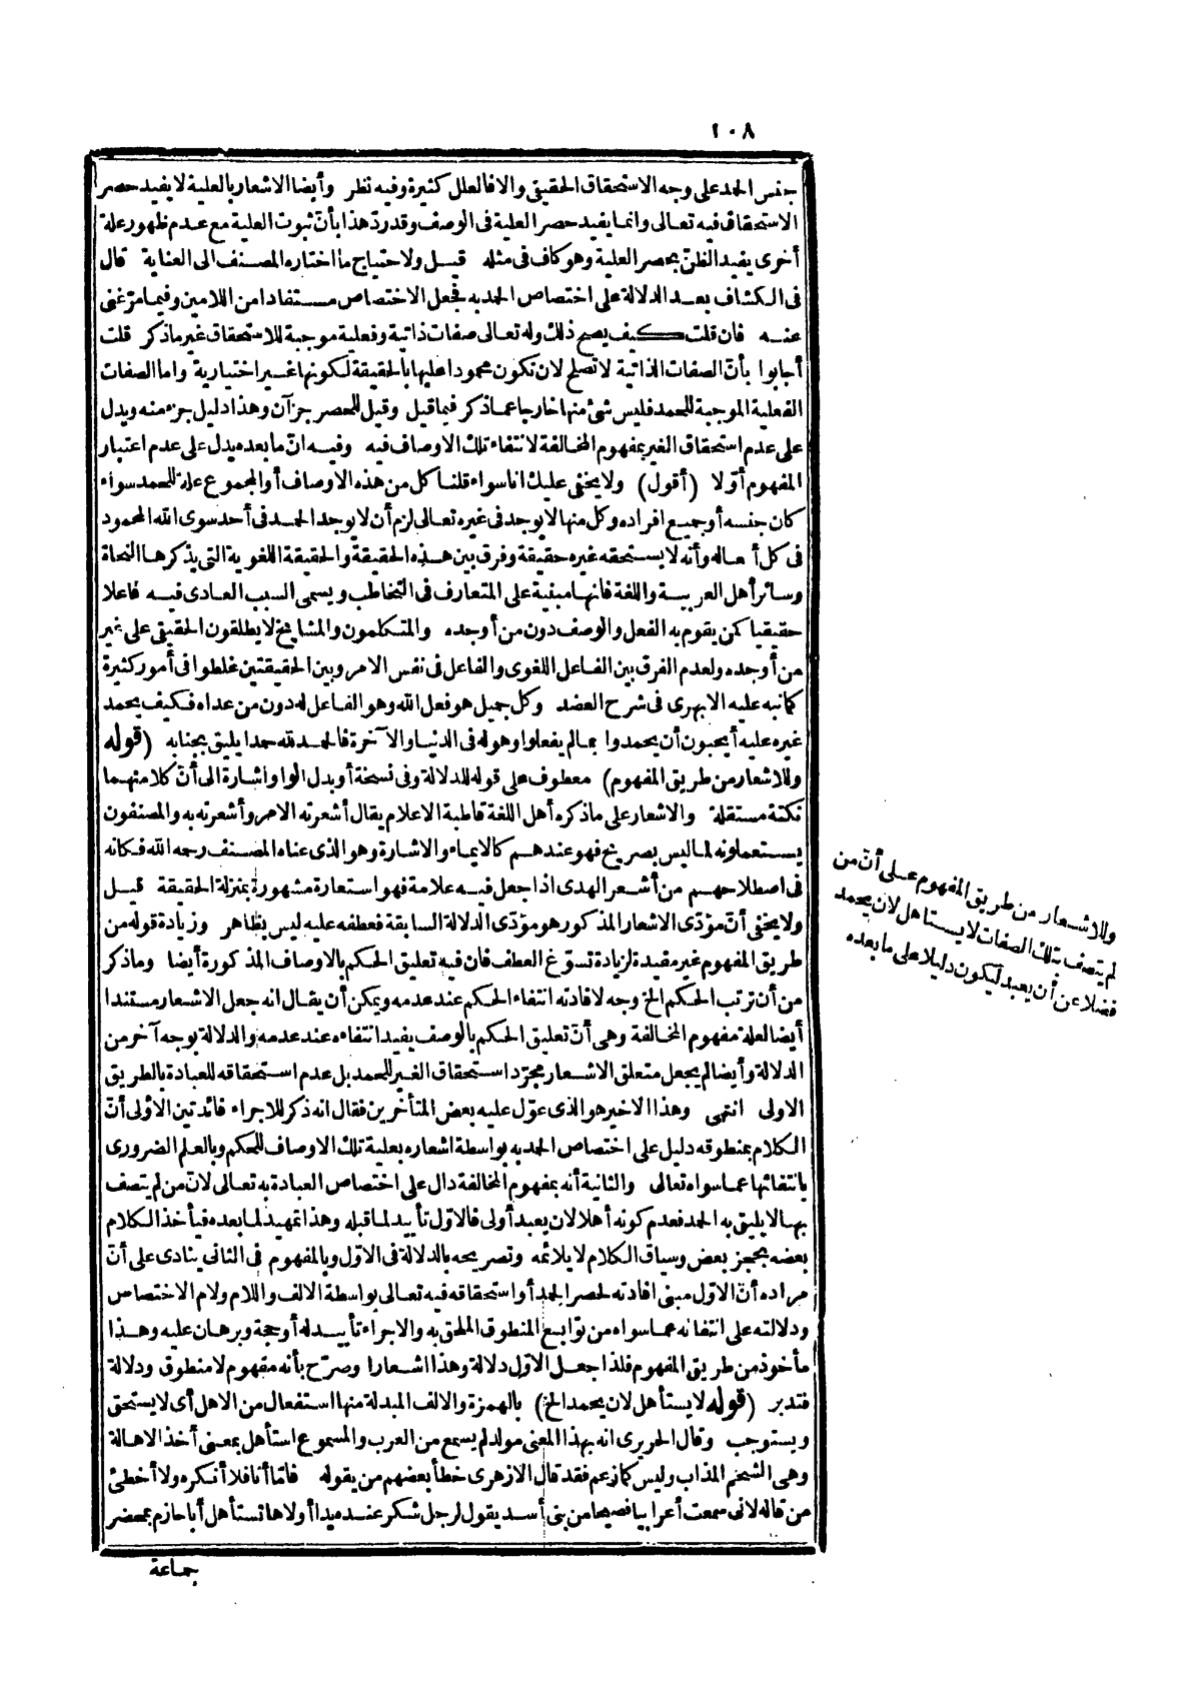 ١٠٨
جنس الحمد على وجه الاستحقاق الحقيقى والا فالعلل كثيرة وفيه نظر وأيضا الاشعار بالعلية لا يفيد حصر
الاستحقاق فيه تعالى وانما يفيد حصر العلية فى الوصف وقد ردّ هذا بأنّ ثبوت العلية مع عدم ظهور علة
أخرى يفيد الظنّ بحصر العلية وهو كاف فى مثله قيل ولا حتياج ما اختاره المصنف الى العناية قال
فى الكشاف بعد الدلالة على اختصاص الحمد به فجعل الاختصاص مستفادا من اللامين وفيما مرّ غنى
عنه فان قلت كيف يصح ذلك وله تعالى صفات ذاتية وفعلية موجبة للاستحقاق غير ما ذكر قلت
أجابوا بأنّ الصفات الذاتية لا تصلح لان تكون محمودا عليها بالحقيقة لكونها غير اختيارية واما الصفات
الفعلية الموجبة للحمد فليس شئ منها خارجا عما ذكر فيما قيل وقيل للحصر جزآن وهذا دليل جزء منه ويدل
على عدم استحقاق الغير بمفهوم المخالفة لانتفاء تلك الاوصاف فيه وفيه انّ ما بعده يدل على عدم اعتبار
المفهوم أوّلا (أقول) ولا يخفى عليك انا سواء قلنا كل من هذه الاوصاف أو المجموع علة للحمد سواء
كان جنسه أو جميع افراده وكل منها لا يوجد فى غيره تعالى لزم أن لا يوجد الحمد فى أحد سوى الله المحمود
فى كل أفعاله وأنه لا يستحقه غيره حقيقة وفرق بين هذه الحقيقة والحقيقة اللغوية التى يذكرها النحاة
وسائر أهل العربية واللغة فانها مبنية على المتعارف فى التخاطب ويسمى السبب العادى فيه فاعلا
حقيقيا كمن يقوم به الفعل والوصف دون من أوجده والمتكلمون والمشايخ لا يطلقون الحقيقى على غير
من أوجده ولعدم الفرق بين الفاعل اللغوى والفاعل فى نفس الامر وبين الحقيقتين غلطوا فى أمور كثيرة
كما نبه عليه الابهرى فى شرح العضد وكل جميل هو فعل الله وهو الفاعل له دون من عداه فكيف يحمد
غيره عليه أيحبون أن يحمدوا بما لم يفعلوا وهو له فى الدنيا والآخرة فالحمد لله حمدا يليق بجنابه (قوله
وللاشعار من طريق المفهوم) معطوف على قوله للدلالة وفى نسخة أو بدل الواو اشارة الى أنّ كلا منهما
نكتة مستقلة والاشعار على ما ذكره أهل اللغة قاطبة الاعلام يقال أشعرته الامر وأشعرته به والمصنفون
يستعملونه لما ليس بصريح فهو عندهم كالايماء والاشارة وهو الذى عناه المصنف رحمه الله فكانه
فى اصطلاحهم من أشعر الهدى اذا جعل فيه علامة فهو استعارة مشهورة بمنزلة الحقيقة قيل
ولا يخفى أنّ مؤدّى الاشعار المذكور هو مؤدّى الدلالة السابقة فعطفه عليه ليس بظاهر وزيادة قوله من
طريق المفهوم غير مقيدة لزيادة تسوّغ العطف فان فيه تعليق الحكم بالاوصاف المذكورة أيضا وما ذكر
من أن ترتب الحكم الخ وجه لافادته انتفاء الحكم عند عدمه ويمكن أن يقال انه جعل الاشعار مستندا
أيضا لعلة مفهوم المخالفة وهى أنّ تعليق الحكم بالوصف يفيد انتفاءه عند عدمه والدلالة بوجه آخر من
الدلالة وأيضا لم يجعل متعلق الاشعار مجرّد استحقاق الغير للحمد بل عدم استحقاقه للعبادة بالطريق
الاولى انتهى وهذا الاخير هو الذى عوّل عليه بعض المتأخرين فقال انه ذكر للاجراء فائدتين الاولى أنّ
الكلام بمنطوقه دليل على اختصاص الحمد به بواسطة اشعاره بعلية تلك الاوصاف للحكم وبالعلم الضرورى
بانتفائها عما سواه تعالى والثانية أنه بمفهوم المخالفة دال على اختصاص العبادة به تعالى لانّ من لم يتصف
بها لا يليق به الحمد فعدم كونه أهلا لان يعبد أولى فالاوّل تأييد لما قبله وهذا تمهيد لما بعده فيأخذ الكلام
بعضه بحجز بعض وسياق الكلام لا يلائمه وتصريحه بالدلالة فى الاوّل وبالمفهوم فى الثانى ينادى على أنّ
مراده أنّ الاوّل مبنى افادته لحصر الحمد أو استحقاقه فيه تعالى بواسطة الالف واللام ولام الاختصاص
ودلالته على انتفائه عما سواه من توابع المنطوق الملحق به والاجراء تأييد له أو حجة وبرهان عليه وهذا
مأخوذ من طريق المفهوم فلذا جعل الاوّل دلالة وهذا اشعارا وصرّح بأنه مفهوم لا منطوق ودلالة
فتدبر (قوله لا يستأهل لان يحمد الخ) بالهمزة والالف المبدلة منها استفعال من الاهل أى لا يستحق
ويستوجب وقال الحريرى انه بهذا المعنى مولد لم يسمع من العرب والمسموع استأهل بمعنى أخذ الاهالة
وهى الشحم المذاب وليس كما زعم فقد قال الازهرى خطأ بعضهم من يقوله فامّا أنا فلا أنكره ولا أخطئ
من قاله لانى سمعت أعرابيا فصيحا من بنى أسد يقول لرجل شكر عنده يدا أولاها تستأهل أبا حازم بمحضر
جماعة
وللاشعار من طريق المفهوم على أنّ من
لم يتصف بتلك الصفات لا يستاهل لان يحمد
فضلا عن أن يعبد ليكون دليلا على ما بعده